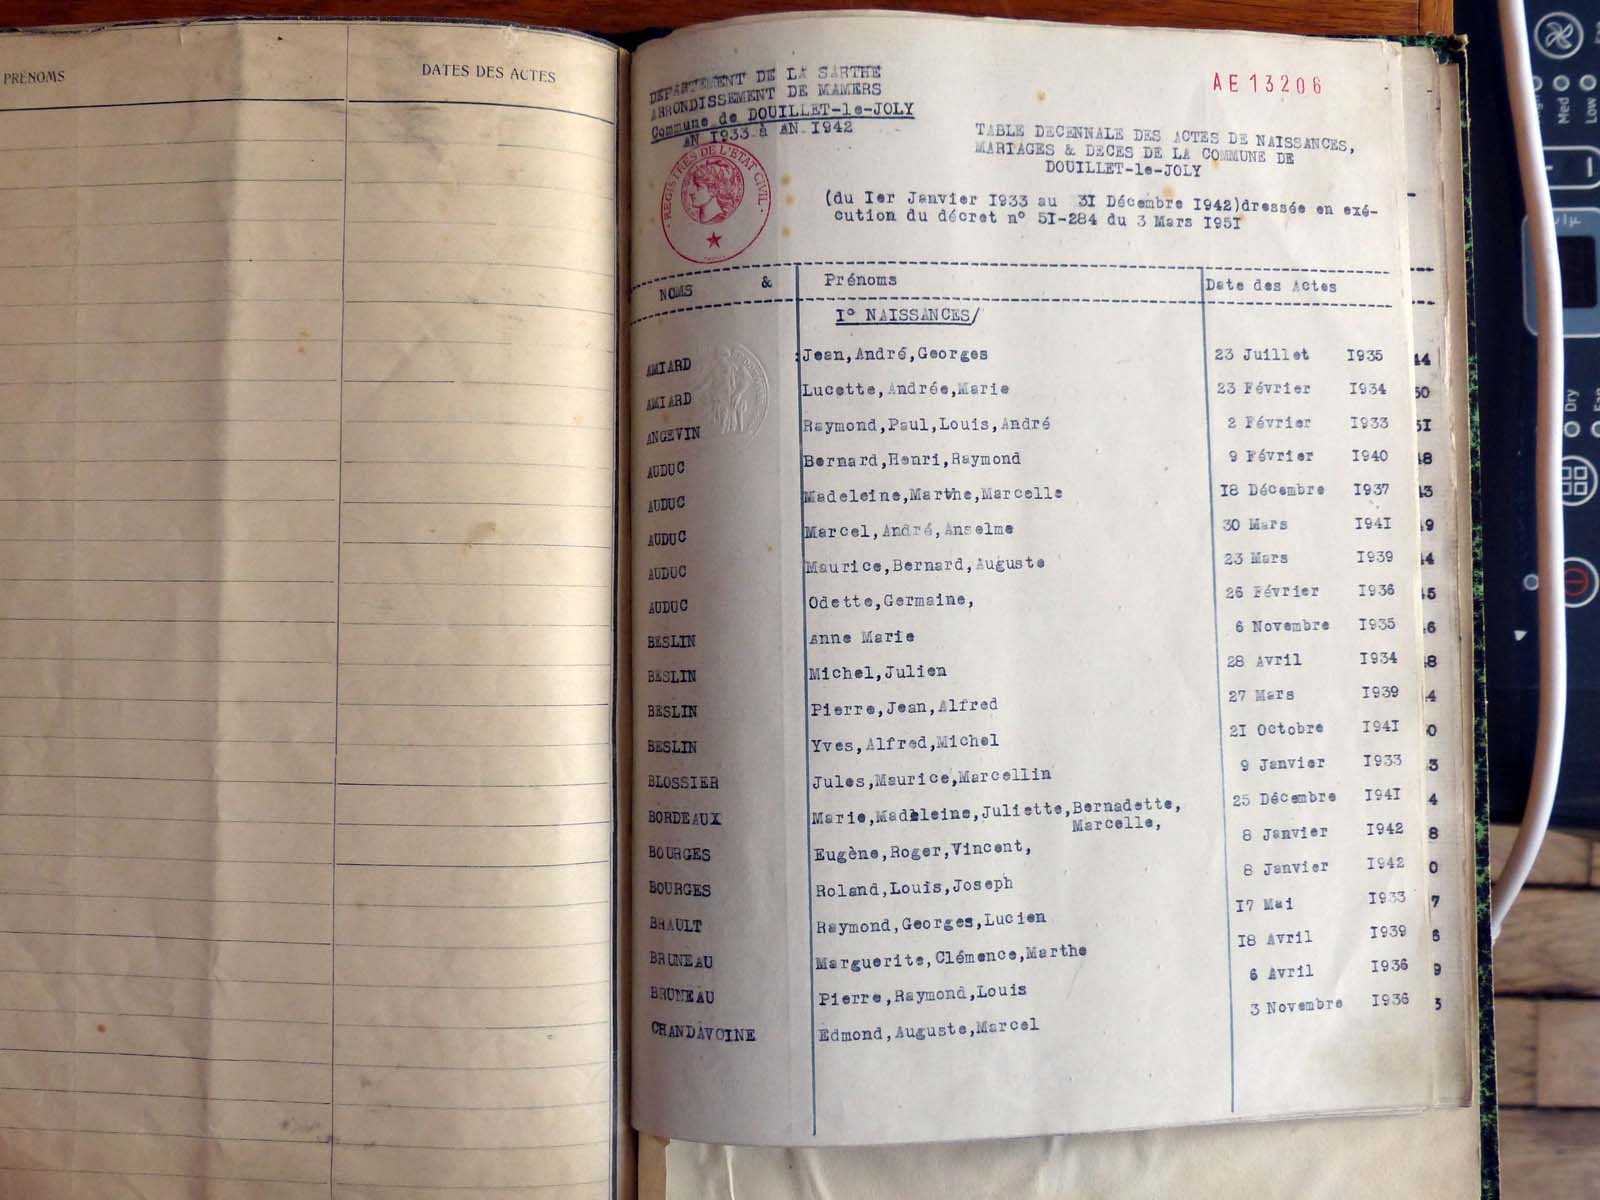 PRÉNOMS
DATES DES ACTES
DEPARTEMENT DE LA SARTHE
ARRONDISSEMENT DE MAMERS
Commune de DOUILLET-le-JOLY
AN I933 à AN I942
REGISTRES DE L'ETAT CIVIL
AE13206
TABLE DECENNALE DES ACTES DE NAISSANCES,
MARIAGES & DECES DE LA COMMUNE DE
DOUILLET-le-JOLY
(du Ier Janvier I933 au 3I Décembre I942)dressée en exé-
cution du décret n° 5I-284 du 3 Mars I95I
NOMS & Prénoms Date des Actes
I° NAISSANCES/
AMIARD :Jean,André,Georges 23 Juillet I935
AMIARD Lucette,Andrée,Marie 23 Février I934
ANGEVIN Raymond,Paul,Louis,André 2 Février I933
AUDUC Bernard,Henri,Raymond 9 Février I940
AUDUC Madeleine,Marthe,Marcelle I8 Décembre I937
AUDUC Marcel,André,Anselme 30 Mars I94I
AUDUC Maurice,Bernard,Auguste 23 Mars I939
AUDUC Odette,Germaine, 26 Février I936
BESLIN Anne Marie 6 Novembre I935
BESLIN Michel,Julien 28 Avril I934
BESLIN Pierre,Jean,Alfred 27 Mars I939
BESLIN Yves,Alfred,Michel 2I Octobre I94I
BLOSSIER Jules,Maurice,Marcellin 9 Janvier I933
BORDEAUX Marie,Madeleine,Juliette,Bernadette, 25 Décembre I94I
Marcelle,
BOURGES Eugène,Roger,Vincent, 8 Janvier I942
BOURGES Roland,Louis,Joseph 8 Janvier I942
BRAULT Raymond,Georges,Lucien I7 Mai I933
BRUNEAU Marguerite,Clémence,Marthe I8 Avril I939
BRUNEAU Pierre,Raymond,Louis 6 Avril I936
CHANDAVOINE Edmond,Auguste,Marcel 3 Novembre I936
Med
Low
Dry